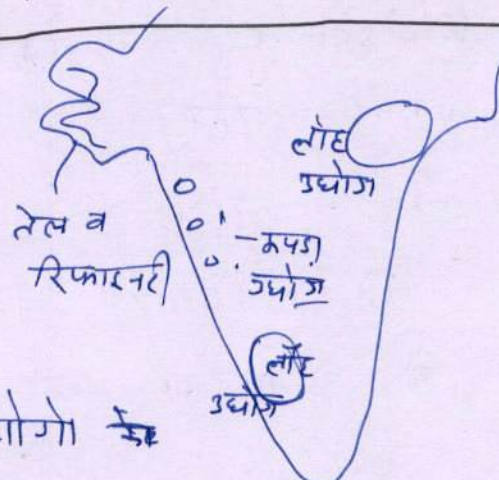 लौह
उद्योग
तेल व
रिफाइनरी
- कपड़ा
उद्योग
लौह
उद्योग